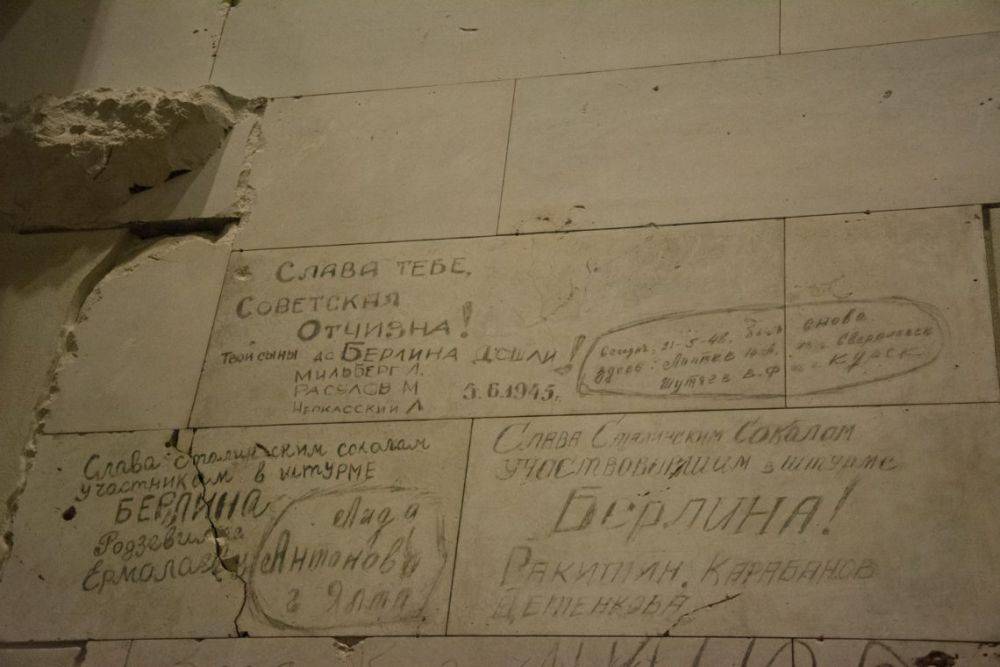 Слава тебе,
Советская
Отчизна!
Твои сыны до Берлина дошли!
Мильберг Л.
Расулов М
Черкасский Л
5.6.1945.
21-5-46.
снова
здесь: Лаптев
Шутяев В.Ф
г. Курск
Слава Сталинским соколам
участникам в штурме
Берлина
Ермолаев
Лида
Антонова
г Ялта
Слава Сталинским Соколам
участвовавшим в штурме
Берлина!
Ракитян. Карабанов
Детенкова